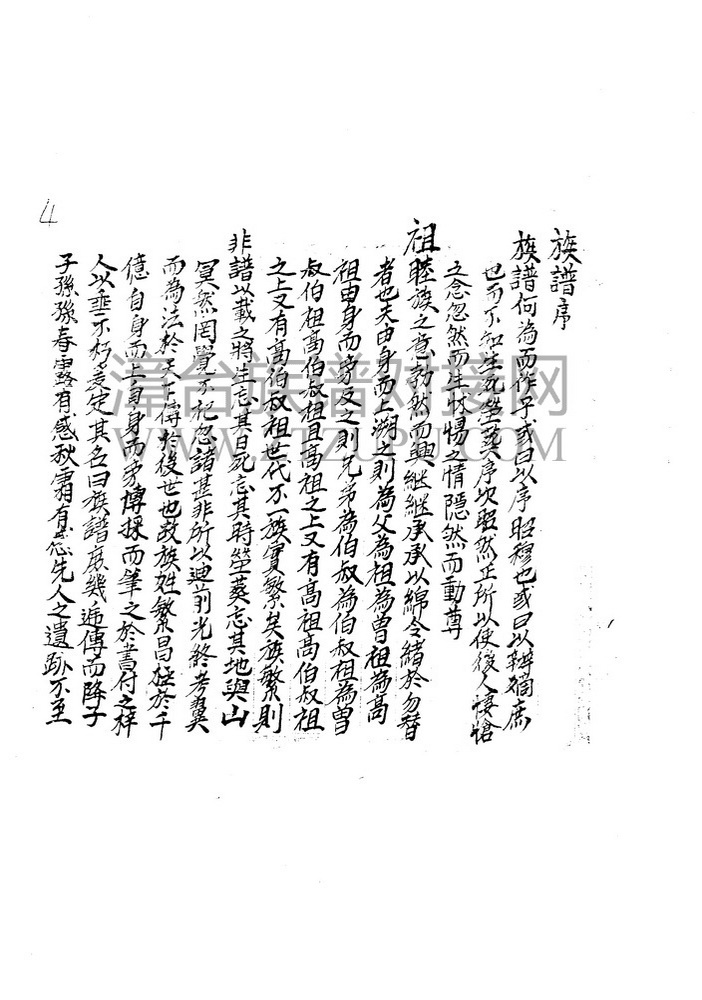 族譜序
族譜何為而作予或曰以序昭穆也或曰以辨嫡庶
也而不知生死塋葬序次昭然正所以使後人悽愴
之念忽然而生怵惕之情隱然而動尊
祖睦族之意勃然而興繼繼承承以綿令緒於勿替
者也夫由身而上溯之則為父為祖為曾祖為高
祖由身而旁及之則兄弟為伯叔為伯叔祖為曾
叔伯祖高伯叔祖且高祖之上又有高祖高伯叔祖
之上又有高伯叔祖世代不一族實繁矣族繁則
非譜以載之將生忘其日死忘其時塋葬忘其地與山
冥然罔覺不祀忽諸甚非所以迪前光終考翼
而為法於天下傳於後世也故族姓繁昌極於千
億自身而上自身而旁博採而筆之於書付之梓
人以垂不朽爰定其名曰族譜庶幾遞傳而降子
子孫孫春露有感秋霜有感先人之遺跡不至
4
漳台族谱对接网
WWW.ZTZUPU.COM